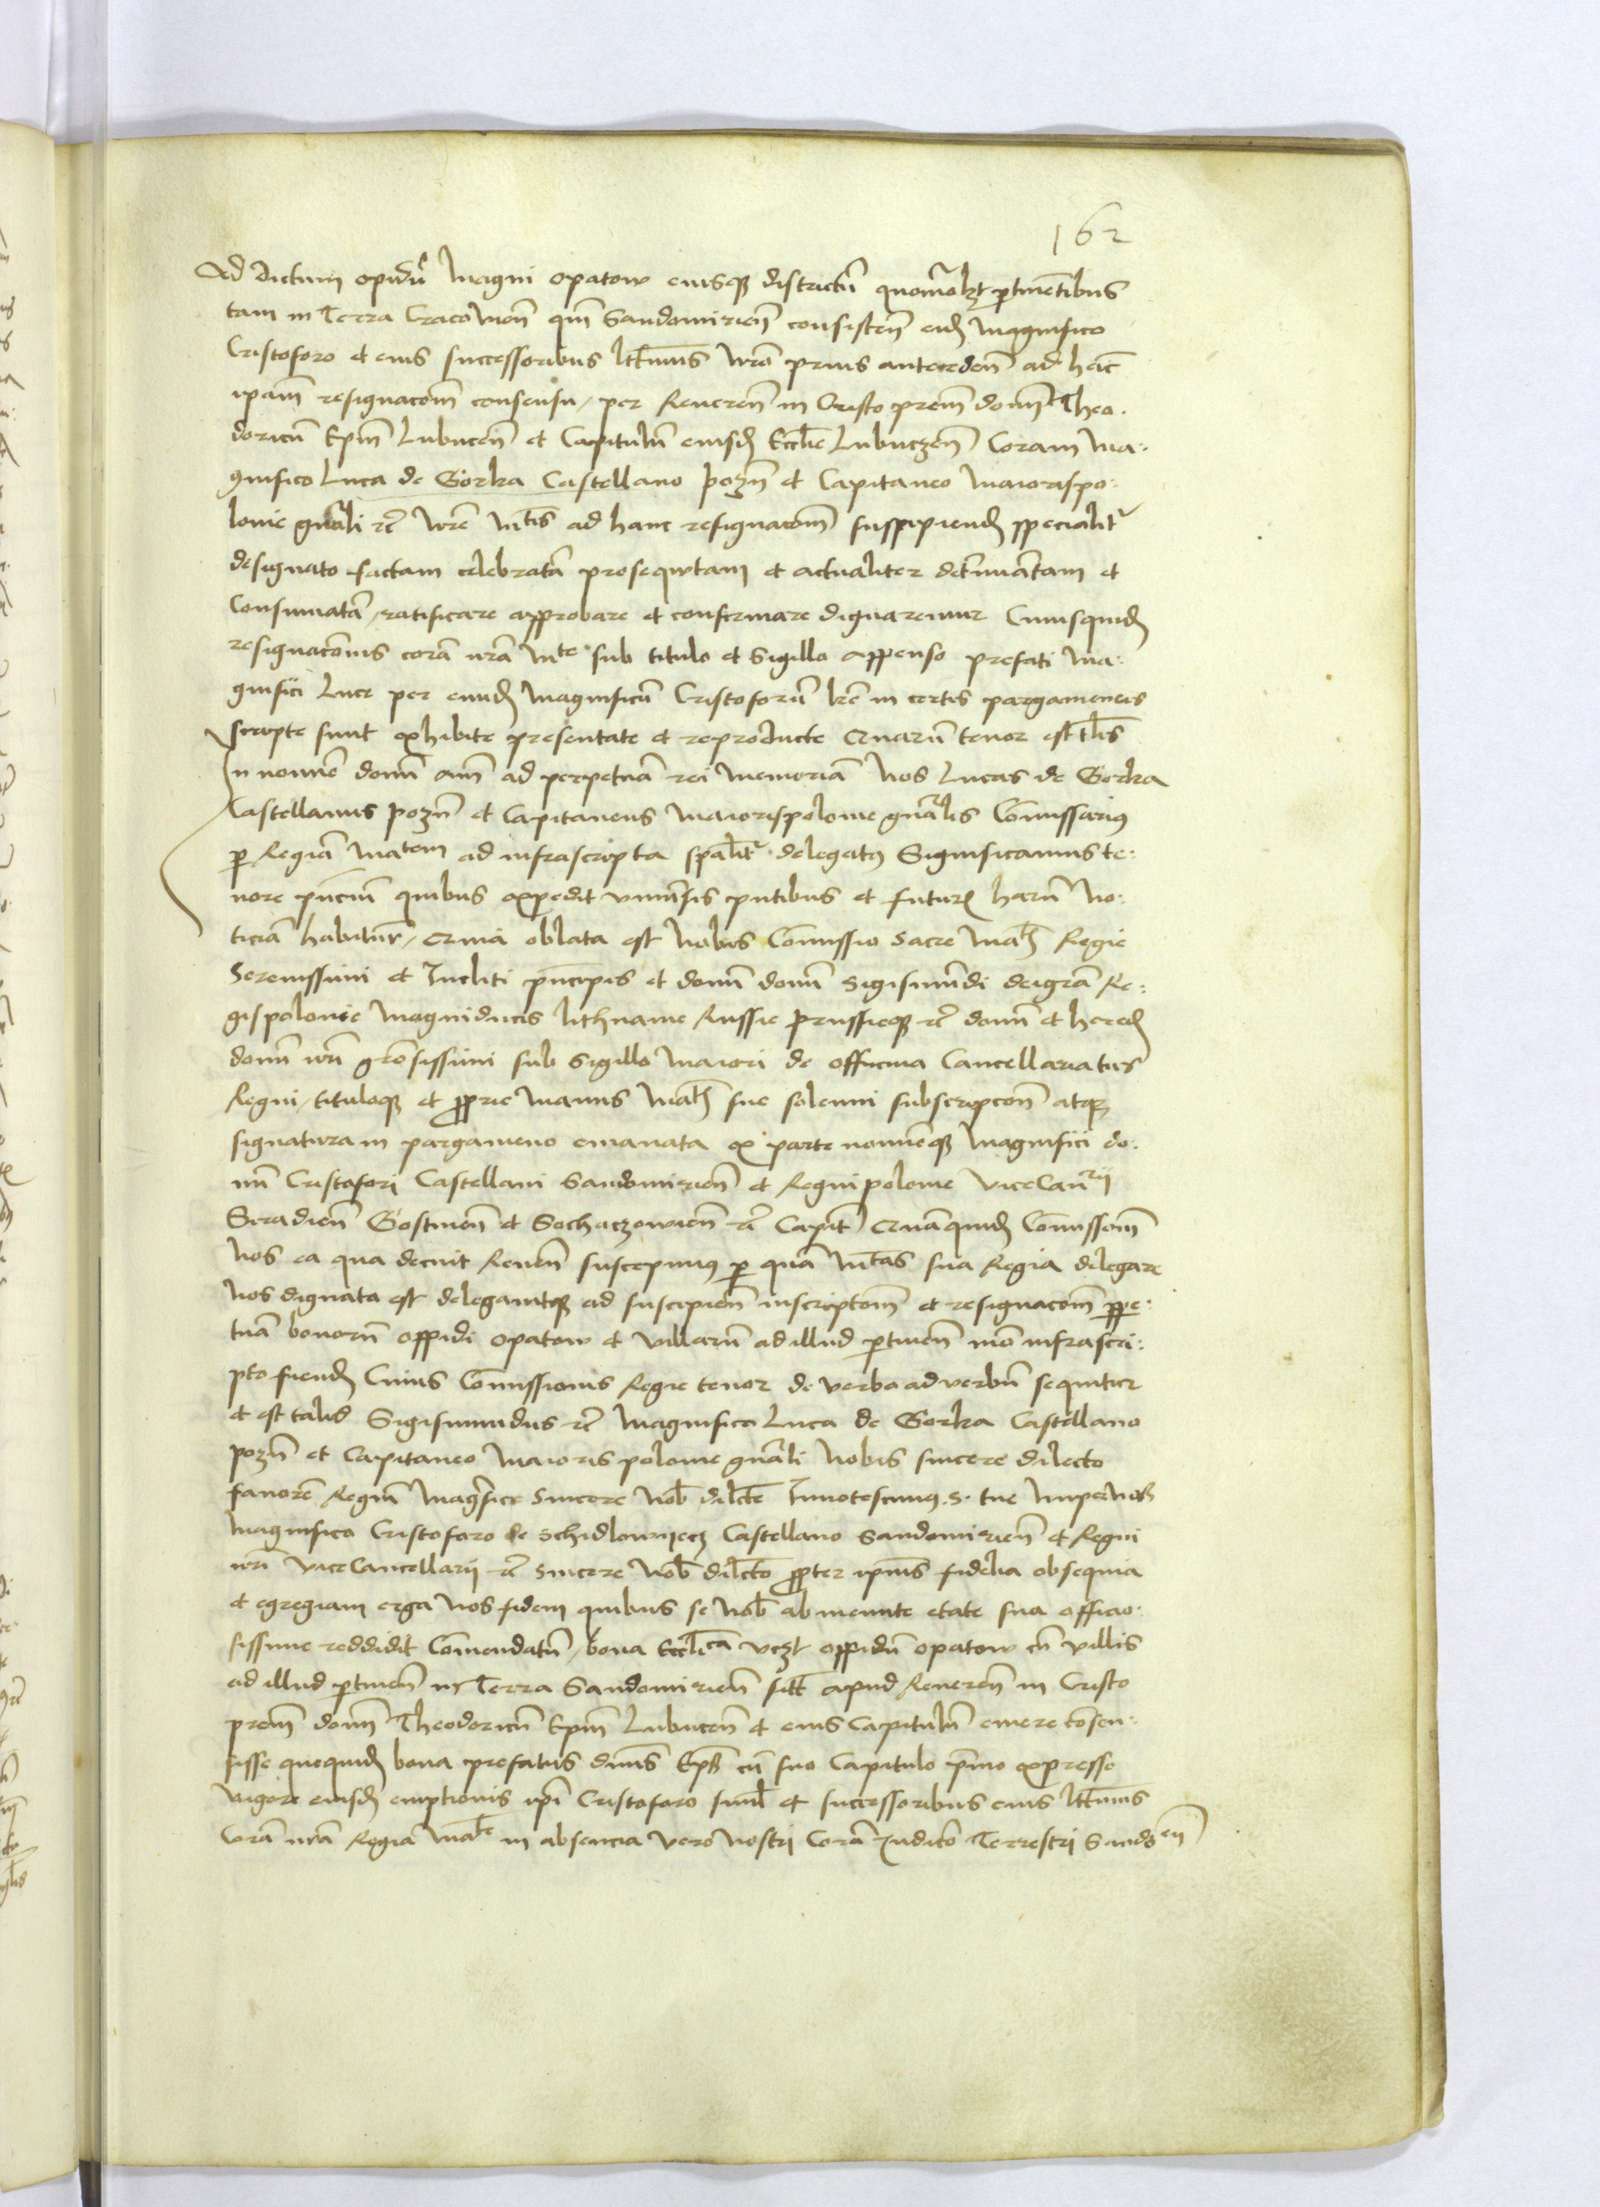 162
Ad dictum opidū magni opatow eiusqꝫ districtū quomōlꝫt ꝑtinētibus
tam in Terra Cracovieñ qm̄ Sandomirieñ consisteñ eid̄ magnifico
Cristoforo et eius successoribus lttīmis nr̄o prius antecedeñ ad hāc
ipam̄ resignacōm consensu / per Revereñ in Cristo prem̄ domī Theo·
doricū Epm̄ Lubuceñ et Capitulū eiusd̄ Ecclīe Lubuczeñ Coram ma·
gnifico Luca de Gorka Castellano pozñ et Capitaneo maiorispo·
lonie gnāli rc̄ nr̄e mtis ad hanc resignacōm suspipiend̄ specialitr
designato factam celebratā prosequtam et actualiter determīatam et
Consumatā / ratificare approbare et confirmare dignaremur Cuiusquid̄
resignacōnis corā nr̄a mte sub titulo et Sigillo appenso prefati ma·
gnifici Luce per eund̄ magnificū Cristoforū lr̄e in certis pargamenis
scripte sunt exhibite presentate et reproducte Quarū tenor est tlis
In nomīe domī am̄ ad perpetuā rei memoriā Nos Lucas de Gorka
Castellanus pozñ et Capitaneus maiorispolonie gnālis Com̄issariꝰ
ꝑ Regiā matem ad infrascripta spālitr delegatꝰ Significamus te·
nore pn̄cium quibus expedit univīsis pn̄tibus et futuris harū no·
ticiā habitur̄ / Quia oblata est nobis Com̄issio Sacre Math Regie
Serenissimi et Incliti pn̄cipis et domī domī Sigismūdi deigrā Re·
gispolonie magniducis lithuanie Russie prussieqꝫ rc̄ domī et hered̄
domī nr̄i grōsissimi sub Sigillo maiori de officina Cancellariatus
Regni / tituloqꝫ et ꝓprie manus Math sue solenni subscripcōn̄ atqꝫ
signatura in pargameno emanata ex parte nomīeqꝫ magnifici do·
mī Cristofori Castellani Sandomirieñ et Regnipolonie viceCanrii
Siradieñ Gostineñ et Sochaczowieñ rc̄ Capit Quāquid̄ Com̄issiom̄
Nos ea qua decuit Reveñ suscepimꝰ ꝑ quā mtas sua Regia delegare
nos dignata est delegavitqꝫ ad suscipieñ inscriptom̄ et resignacōm ꝑpe·
tuā bonorū oppidi opatow et villarū ad illud ꝑtineñ mō infrascri·
pto fiend̄ Cuius Com̄issionis Regie tenor de verbo ad verbū sequitur
et est talis Sigismundus rc̄ magnifico Luca de Gorka Castellano
pozñ et Capitaneo maioris polonie gnāli nobis sincere dilecto
favorē Regiū magnifice sincere nob̄ dilcte Innotescimꝰ .S. tue nuper nos
magnifico Cristoforo de Schidlowyecz Castellano Sandomirieñ et Regni
nr̄i viceCancellarii rc̄ sincere nob̄ dilcto ꝓpter ipius fidelia obsequia
et egregiam erga nos fidem quibus se nob̄ ab ineunte etate sua officio·
sissime reddidit Comendatū / bona Ecclīca vꝫt oppidū opatow cū villis
ad illud ꝑtineñ in Terra Sandomirieñ sitt apud Revereñ in Cristo
prem̄ domī Theodoricū Epm̄ Lubuceñ et eius Capitulū emere cōsen·
sisse queqquid̄ bona prefatus dn̄us Epūs cū suo Capitulo p̄mo expresso
vigore eiusd̄ emptionis ipi Cristoforo simł et successoribus eius lttīmis
Corā nr̄a Regia Mate in absencia vero nostri Corā Judicō Terrestri Sandōen̄